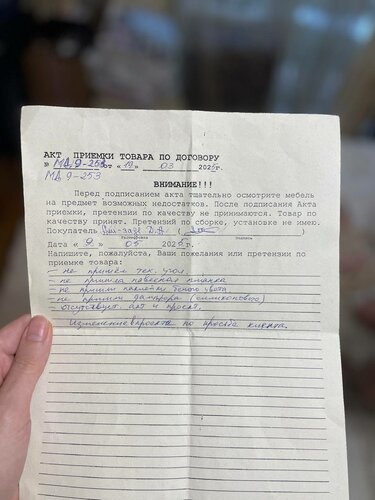 АКТ ПРИЕМКИ ТОВАРА ПО ДОГОВОРУ
№ МД 9-253 от « 19 » 03 2025г.
МД 9-253
ВНИМАНИЕ!!!
Перед подписанием акта тщательно осмотрите мебель
на предмет возможных недостатков. После подписания Акта
приемки, претензии по качеству не принимаются. Товар по
качеству принят. Претензий по сборке, установке не имею.
Покупатель Д.А. ( )
Расшифровка Подпись
Дата « 9 » 05 2025г.
Напишите, пожалуйста, Ваши пожелания или претензии по
приемке товара:
- не пришел тех. угол.
- не пришла навесная планка
- не пришли наклейки белого цвета
- не пришли демпфера (силиконовые)
- отсутствует акт и проект.
Изменение проекта по просьбе клиента.